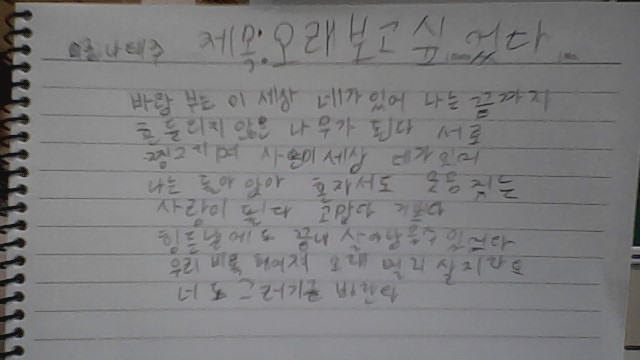 이름 나태주 제목: 오래보고싶었다
바람 부는 이 세상 네가있어 나는 끝까지
흔들리지 않은 나무가 된다 서로
찡그리며 사는이세상 네가있어
나는 돌아 앉아 혼자서도 웃음 짓는
사람이 된다 고맙다 기쁘다
힘든날에도 끝내 살아남을수 있었다
우리 비록 헤어져 오래 멀리 살지라도
너도 그러기를 바란다